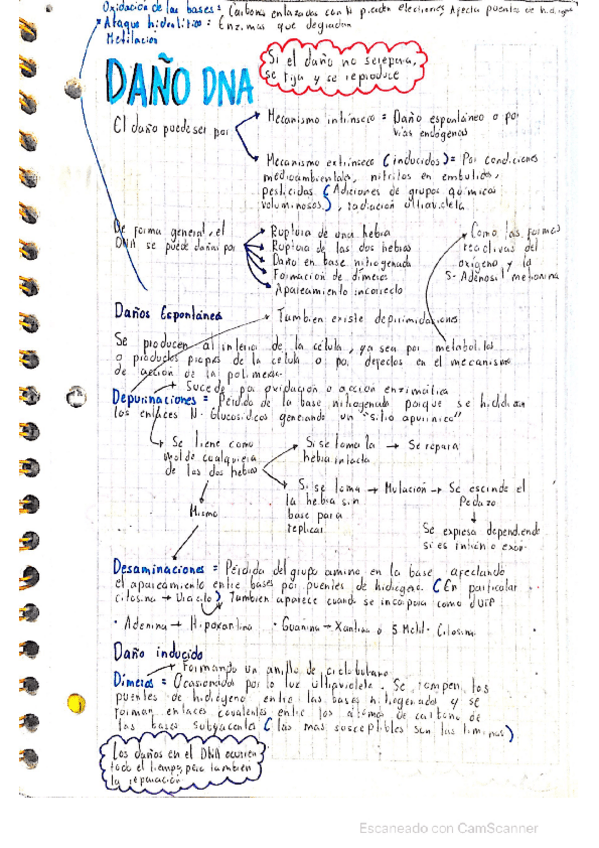 Oxidación de las bases = Carbonos enlazados con N pierden electrones, Afecta puente de hidrog
Ataque hidrolitico = Enzimas que degradan
Metilación
DAÑO DNA
Si el daño no se repara,
se fija y se reproduce
El daño puede ser por
Mecanismo intrinseco = Daño espontáneo o por
vias endogenas
Mecanismo extrinseco (inducidos) = Por condiciones
medioambientales, nitritos en embutidos,
pesticidas (Adiciones de grupos químicos
voluminosos), radiación ultravioleta.
De forma general, el
DNA se puede dañar por
Ruptura de una hebra
Ruptura de las dos hebras
Daño en base nitrogenada
Formación de dimeros
Apareamiento incorrecto
Como las formas
reactivas del
oxigeno y la
S-Adenosil metionina
Daños Espontáneos
Tambien existe depirimidaciones
Se producen al interior de la célula, ya sea por metabolitos
o productos propios de la celula o por defectos en el mecanismo
de acción de la polimerasa
Sucede por oxidación o acción enzimática
Depurinaciones = Perdida de la base nitrogenada porque se hidrolizan
los enlaces N-Glucosidicos generando un "sitio apurinico"
Se tiene como
molde cualquiera
de las dos hebras
Si se toma la
hebra intacta
Se repara
Si se toma
la hebra sin
base para
replicar
Mutación
Se escinde el
Pedazo
Se expresa dependiendo
si es intrón o exon
Desaminaciones = Perdida del grupo amino en la base, afectando
el apareamiento entre bases por puentes de hidrógeno. (En particular
citosina → Uracilo) Tambien aparece cuando se incorpora como dUTP
· Adenina → Hipoxantina · Guanina → Xantina o 5 Metil-Citosina ·
Daño inducido
Formando un anillo de ciclobutano
Dimeros = Ocasionados por la luz ultravioleta. Se rompen los
puentes de hidrógeno entre las bases nitrogenadas y se
forman enlaces covalentes entre los átomos de carbono de
las bases subyacentes (las mas susceptibles son las timinas)
Los daños en el DNA ocurren
todo el tiempo, pero tambien
la reparación
Escaneado con CamScanner